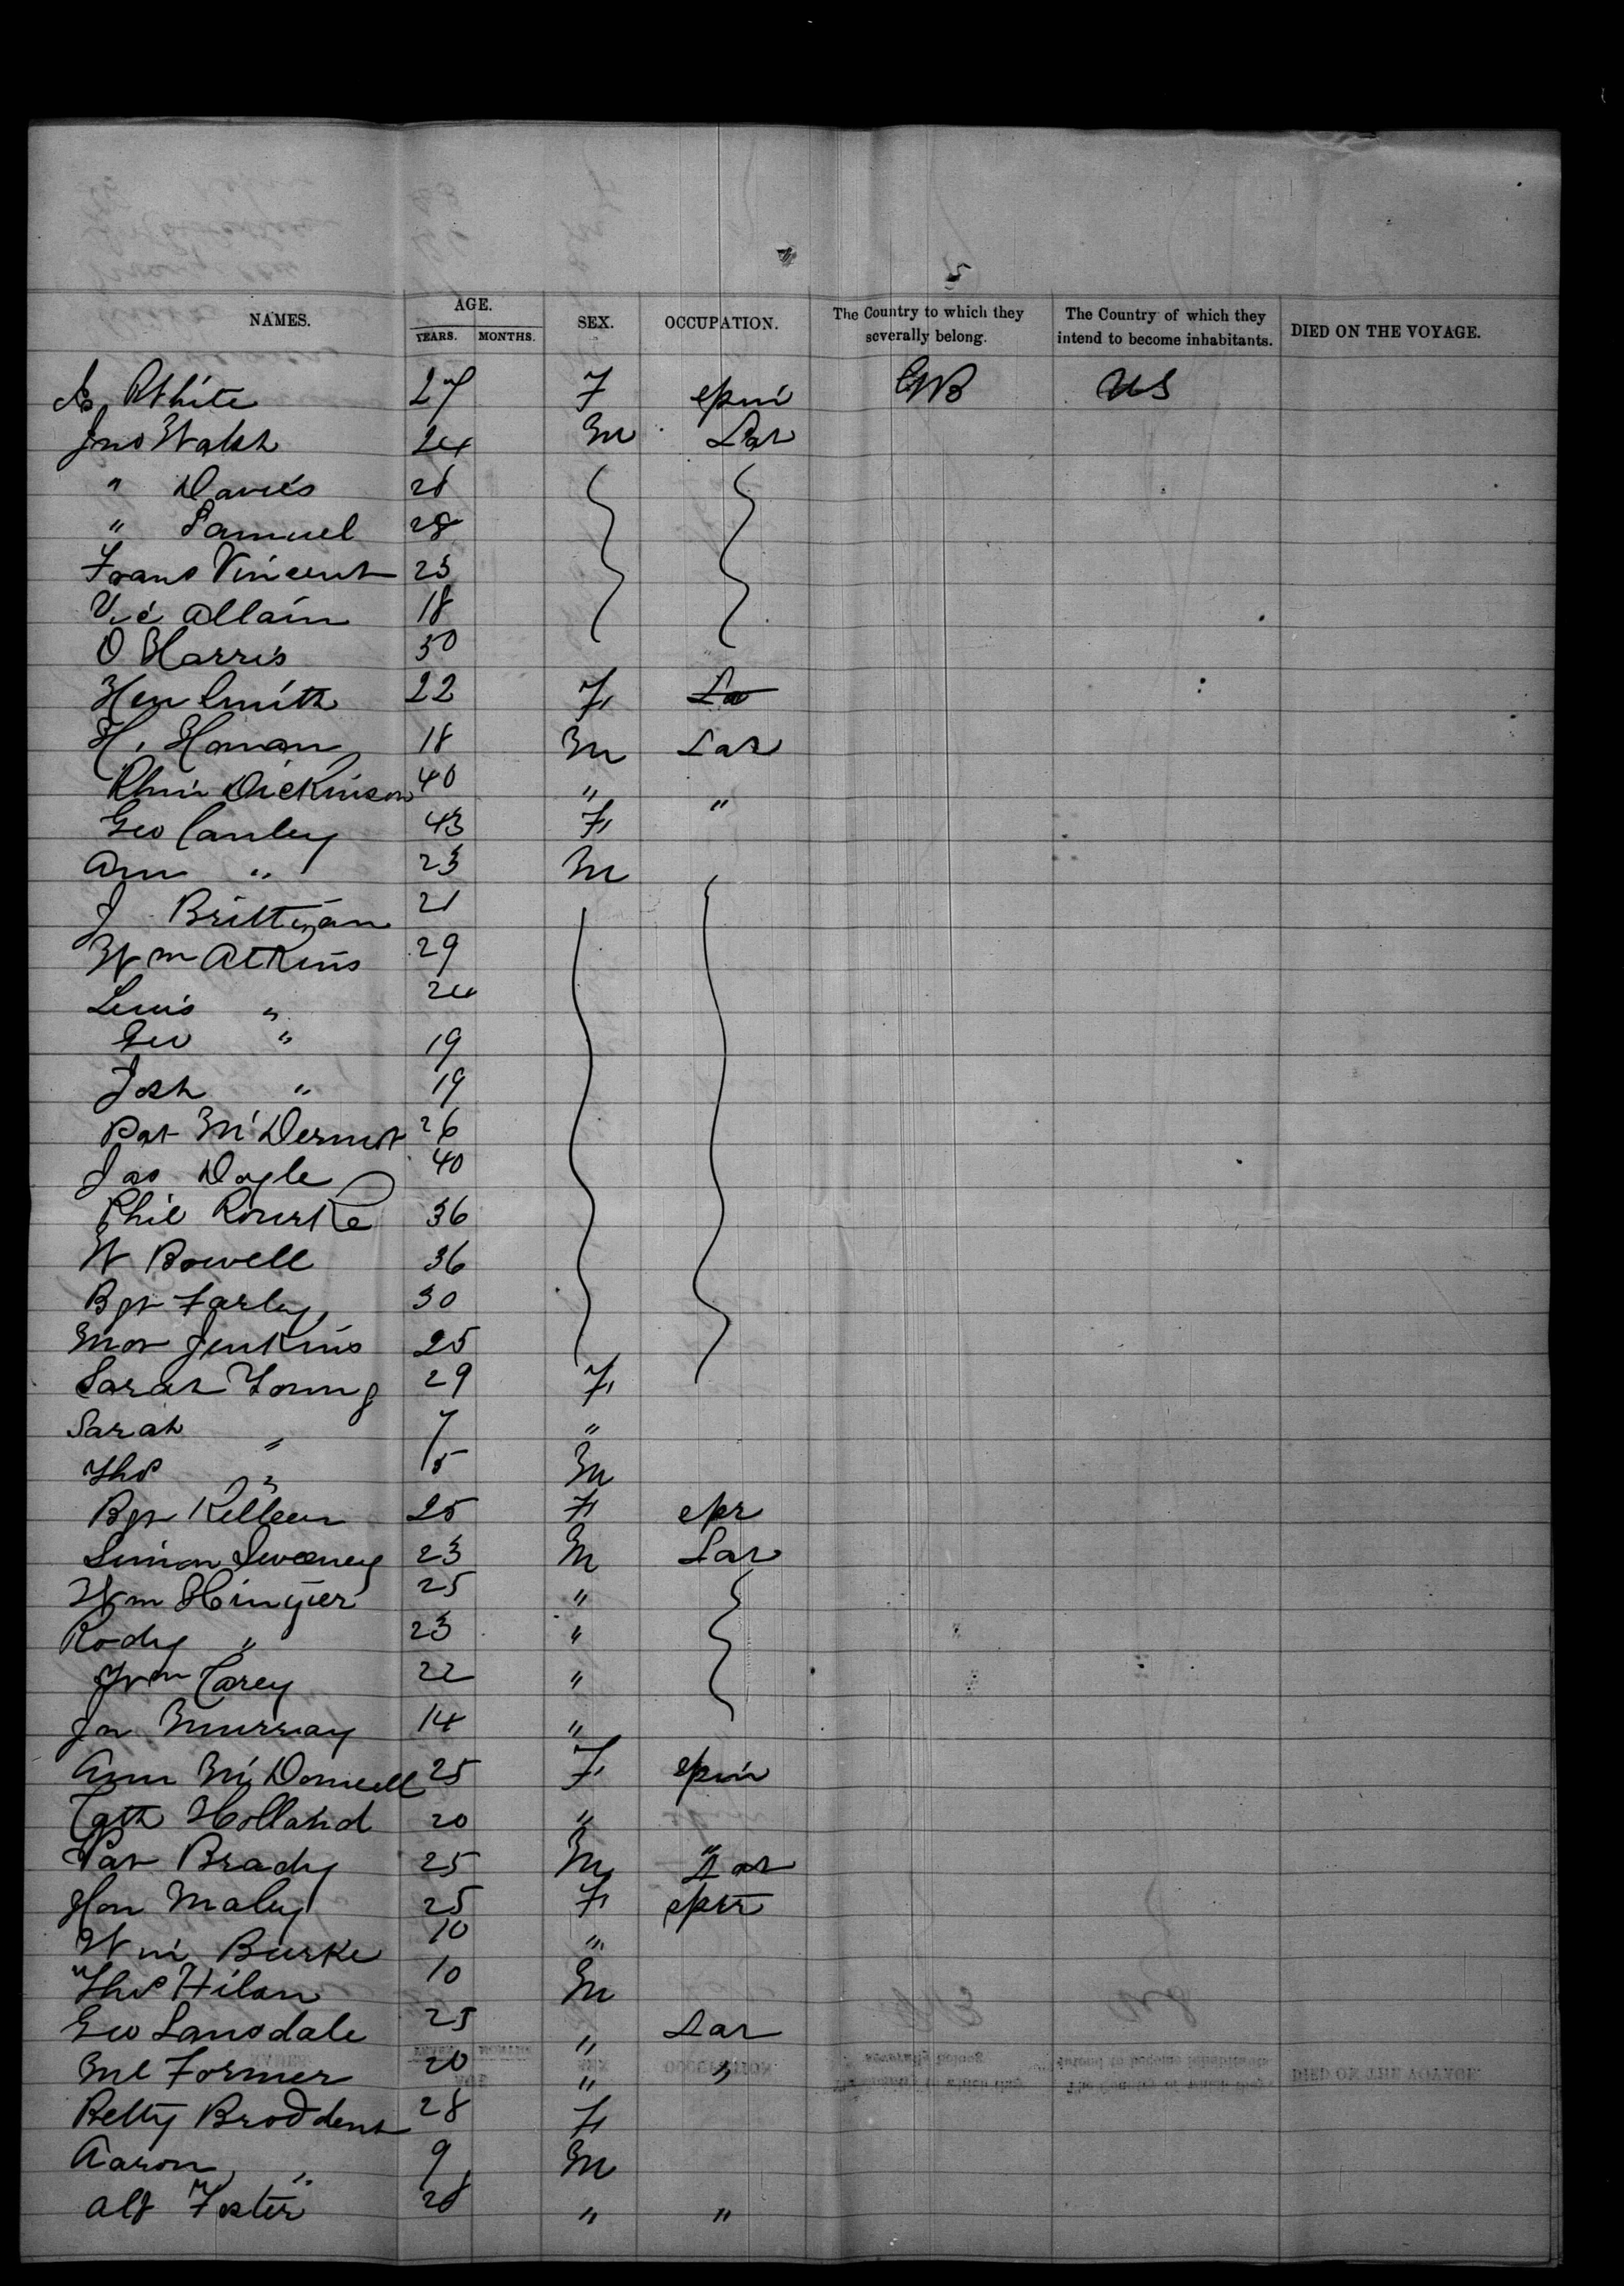 5
NAMES. AGE. YEARS. MONTHS. SEX. OCCUPATION. The Country to which they severally belong. The Country of which they intend to become inhabitants. DIED ON THE VOYAGE.
White 27 F spin GB US
Jno Walsh 24 M Lar
" Davies 26
" Samuel 28
Frans Vincent 23
Vic Allain 18
O Harris 30
Hen Smith 22 F La
H. Honan 18 M Lar
Dickinson 40 " "
Geo Canley 43 F
Ann " 23 M
J Brittian 21
Wm Atkins 29
Lewis " 24
Geo " 19
Josh " 19
Pat McDermot 26
Jas Doyle 40
Phil Rourke 36
W Bowell 36
Bgt Farley 30
Mor Jenkins 25
Sarah Young 29 F
Sarah " 7 "
Thos " 5 M
Bgt Killeen 25 F spr
Simon Sweeney 23 M Lar
Wm 25 "
Rody " 23 "
Wm Carey 22 "
Jn Murray 14 "
Ann McDonnell 25 F spin
Cath Holland 20 " "
Pat Brady 25 M Lar
Hon Maley 25 F spr
Wm Burke 10 "
Thos Hilan 10 M
Geo Lansdale 25 " Lar
Ml Former 20 " "
Betty Broddent 28 F
Aaron " 9 M
Alf Foster 28 " "